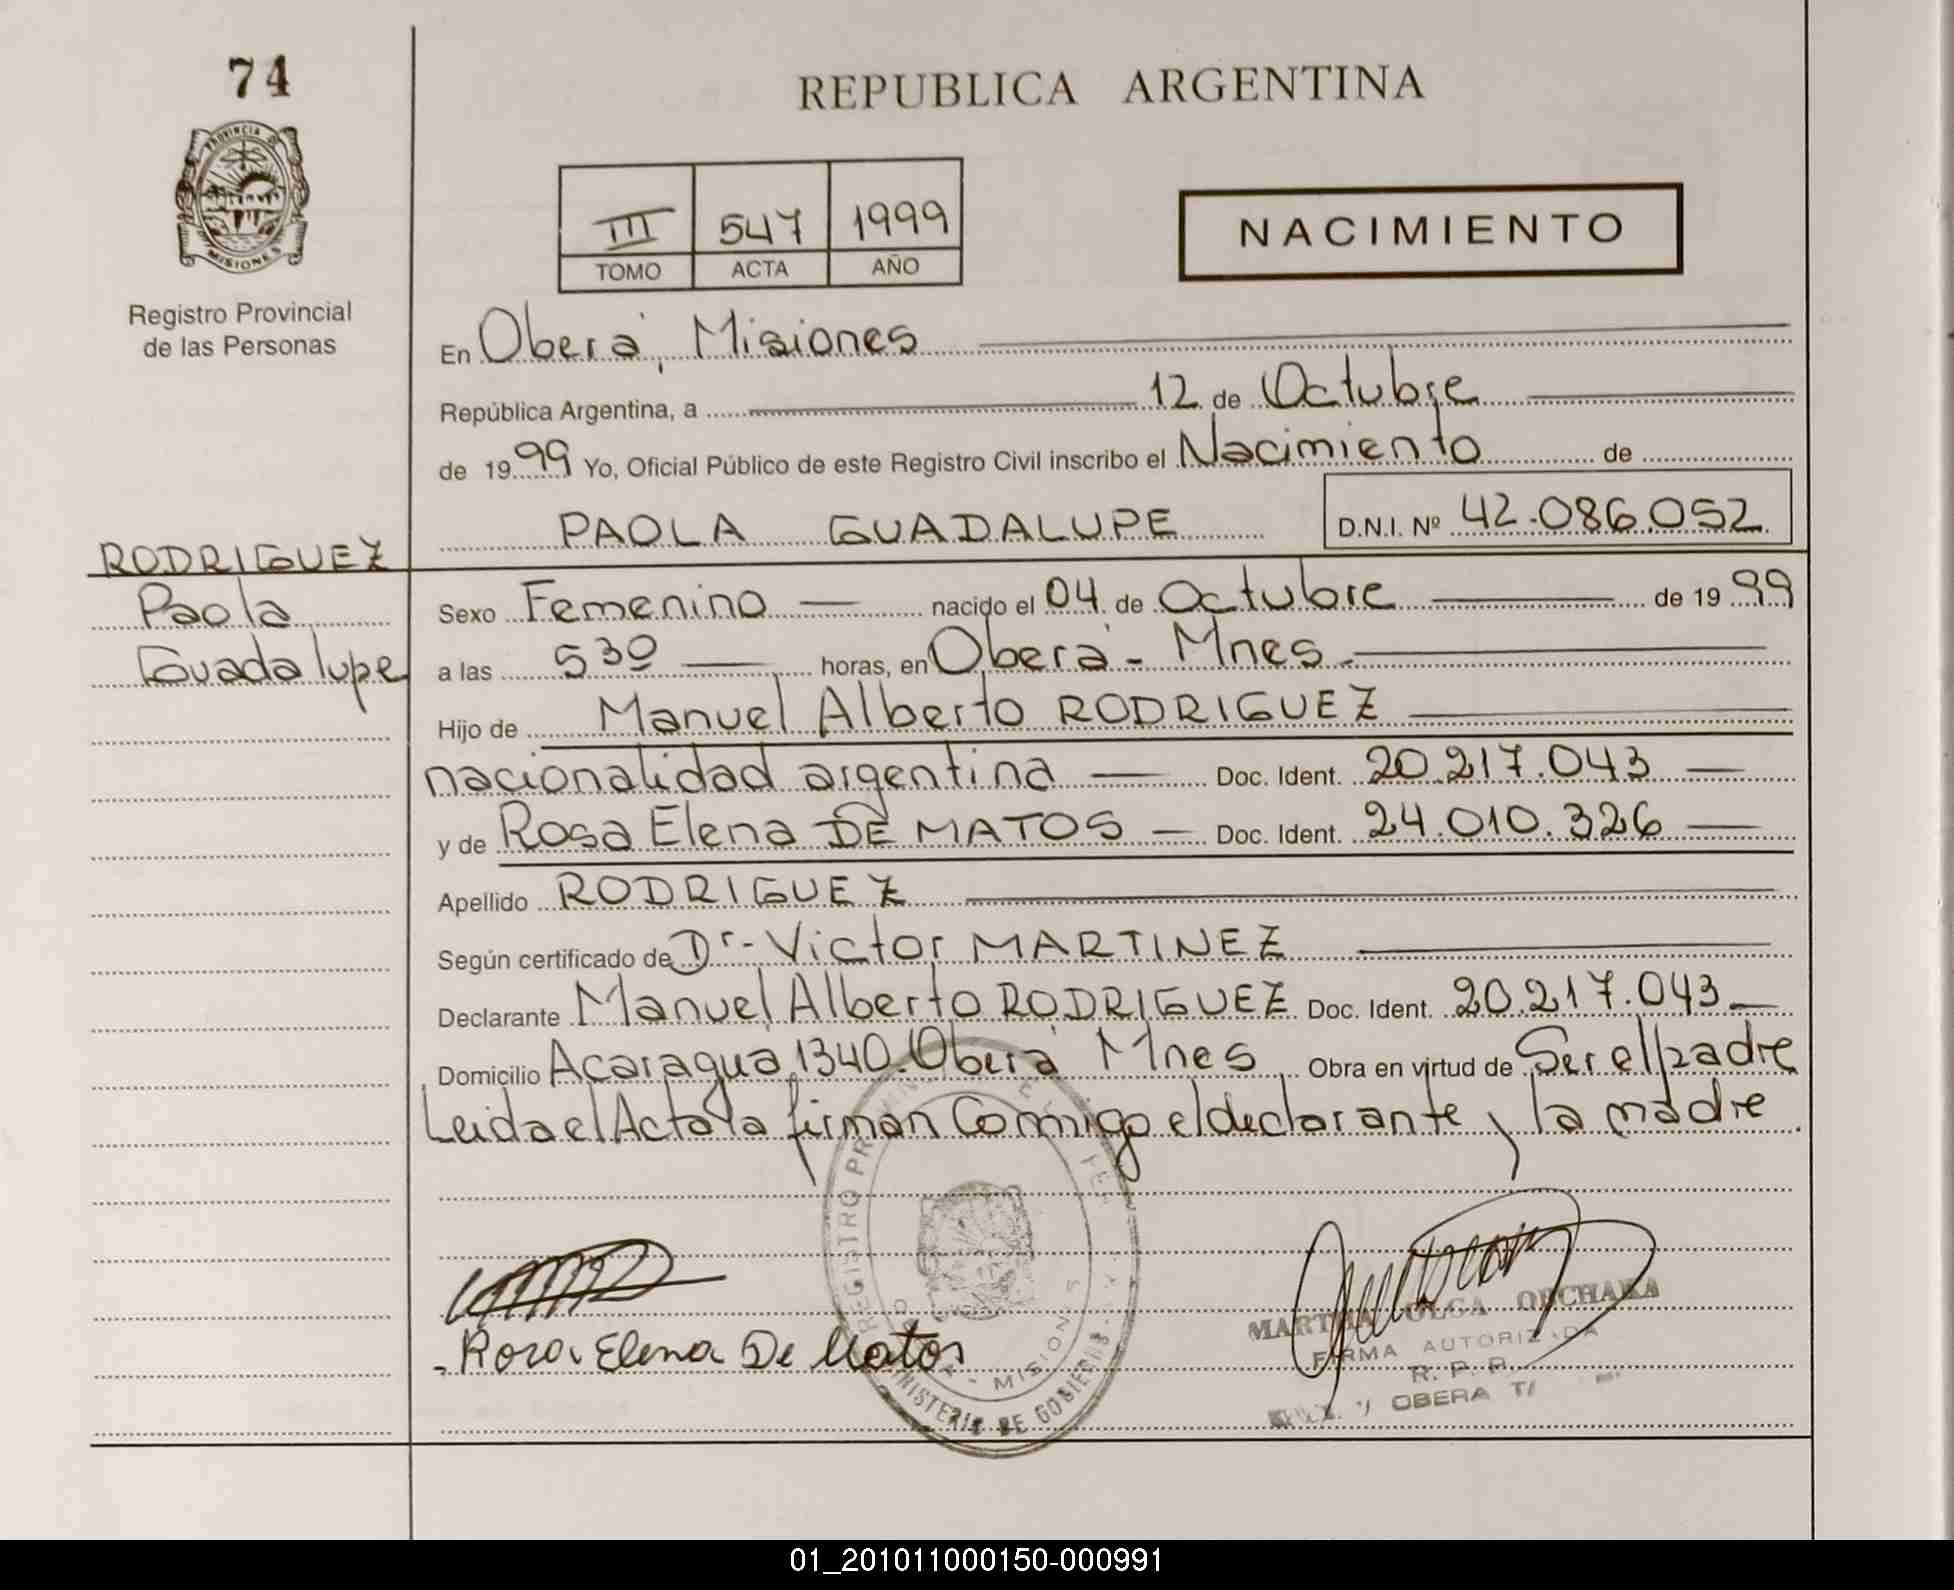 74
REPUBLICA ARGENTINA
PROVINCIA DE
MISIONES
III 547 1999
TOMO ACTA AÑO
NACIMIENTO
Registro Provincial
de las Personas
En Oberá, Misiones
República Argentina, a 12 de Octubre
de 1999 Yo, Oficial Público de este Registro Civil inscribo el Nacimiento de
PAOLA GUADALUPE D.N.I. Nº 42.086.052
RODRIGUEZ
Paola
Guadalupe
Sexo Femenino — nacido el 04 de Octubre de 1999
a las 5 30 horas, en Oberá - Mnes.
Hijo de Manuel Alberto RODRIGUEZ
nacionalidad argentina — Doc. Ident. 20.217.043 —
y de Rosa Elena DE MATOS — Doc. Ident. 24.010.326 —
Apellido RODRIGUEZ
Según certificado de Dr. Victor MARTINEZ
Declarante Manuel Alberto RODRIGUEZ Doc. Ident. 20.217.043 —
Domicilio Acaragua 1340. Oberá Mnes Obra en virtud de Ser el padre
Leida el Acta la firman Conmigo el declarante y la madre.
Rosa Elena De Matos
REGISTRO
MISIONES
MINISTERIO DE GOBIERNO
MARTHA OLGA
FIRMA AUTORIZADA
R. P. P.
OBERA
01_201011000150-000991